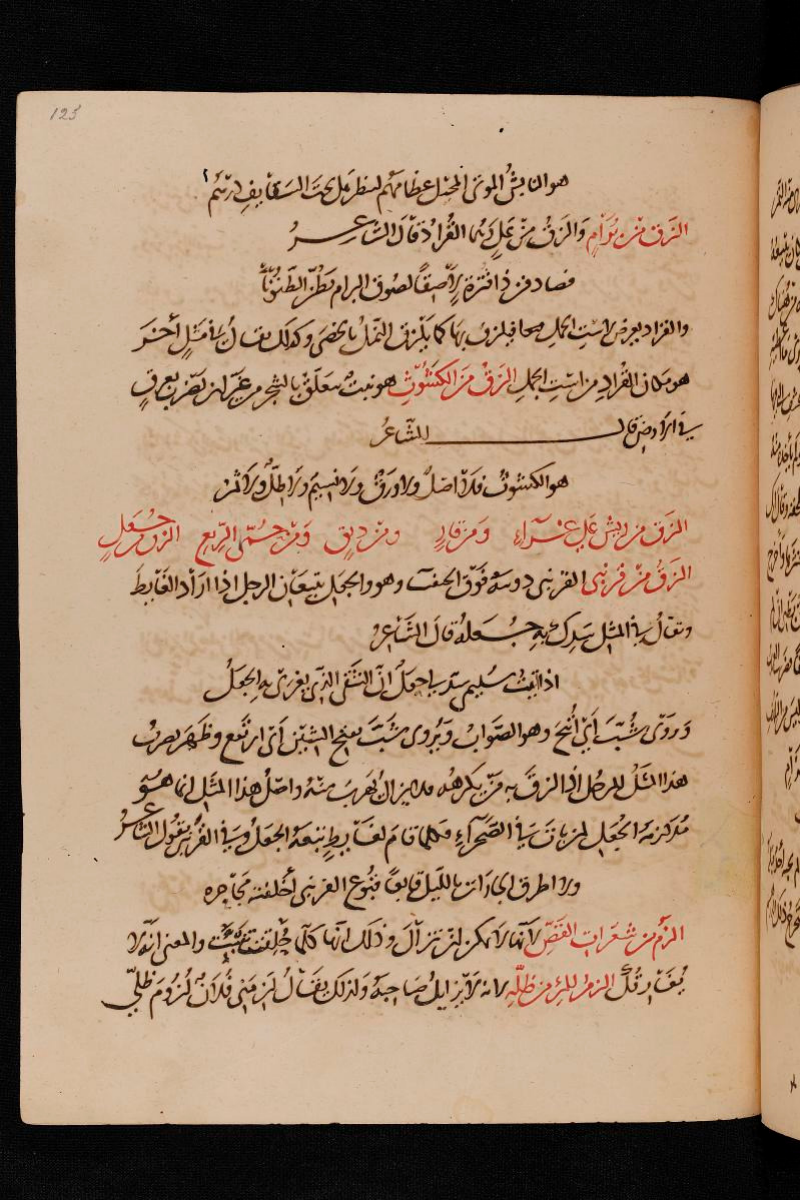 125
هو النابش الموتى المخل عظامهم لينظر هل تحت السقايف درتهم
الزق من برام والزق من عل وهما القراد قال الشاعر
فصادفن ذا فترة لاصقا لصوق البرام يظن الظنونا
والقراد يعرض لاست الجمل فيلزق بها كما يلزق النمل بالخصى وكذلك يقال في مثل آخر
هو مكان القراد من است الجمل الزق من الكشوث هو نبت يتعلق بالشجر من غير ان يضرب بعرق
في الارض قال الشاعر
هو الكشوث فلا اصل ولا ورق ولا نسيم ولا ظل ولا ثمر
الزق من ريش على غراء ومن قار ومن دبق ومن حمى الربع الزق من جعل
الزق من قرنبى القرنبى دويبة فوق الخنفساء وهو والجعل يتبعان الرجل اذا اراد الغايط
ويقال في المثل سدك به جعله قال الشاعر
اذا اتيت سليمى شد لي جعل ان الشقي الذي يغرى به الجعل
وروى شب اي اتيح وهو الصواب ويروى شب بفتح الشين اي ارتفع وظهر يضرب
هذا المثل للرجل اذا لزق به من يكرهه فلا يزال يهرب منه واصل هذا المثل انما هو
ملازمة الجعل لمن بات في الصحراء فكلما قام لغايط تبعه الجعل وفي القرنبى يقول الشاعر
ولا اطرق الجارات بالليل قابعا قبوع القرنبى اخلفته محاجره
الزم من شعرات القص لانها لا يمكن ان تزال وذلك انها كلما حلقت نبتت والمعنى انه لا
يفارقك الزم للمرء من ظله لانه لا يزايل صاحبه ولذلك يقال لزمني فلان لزوم ظلي